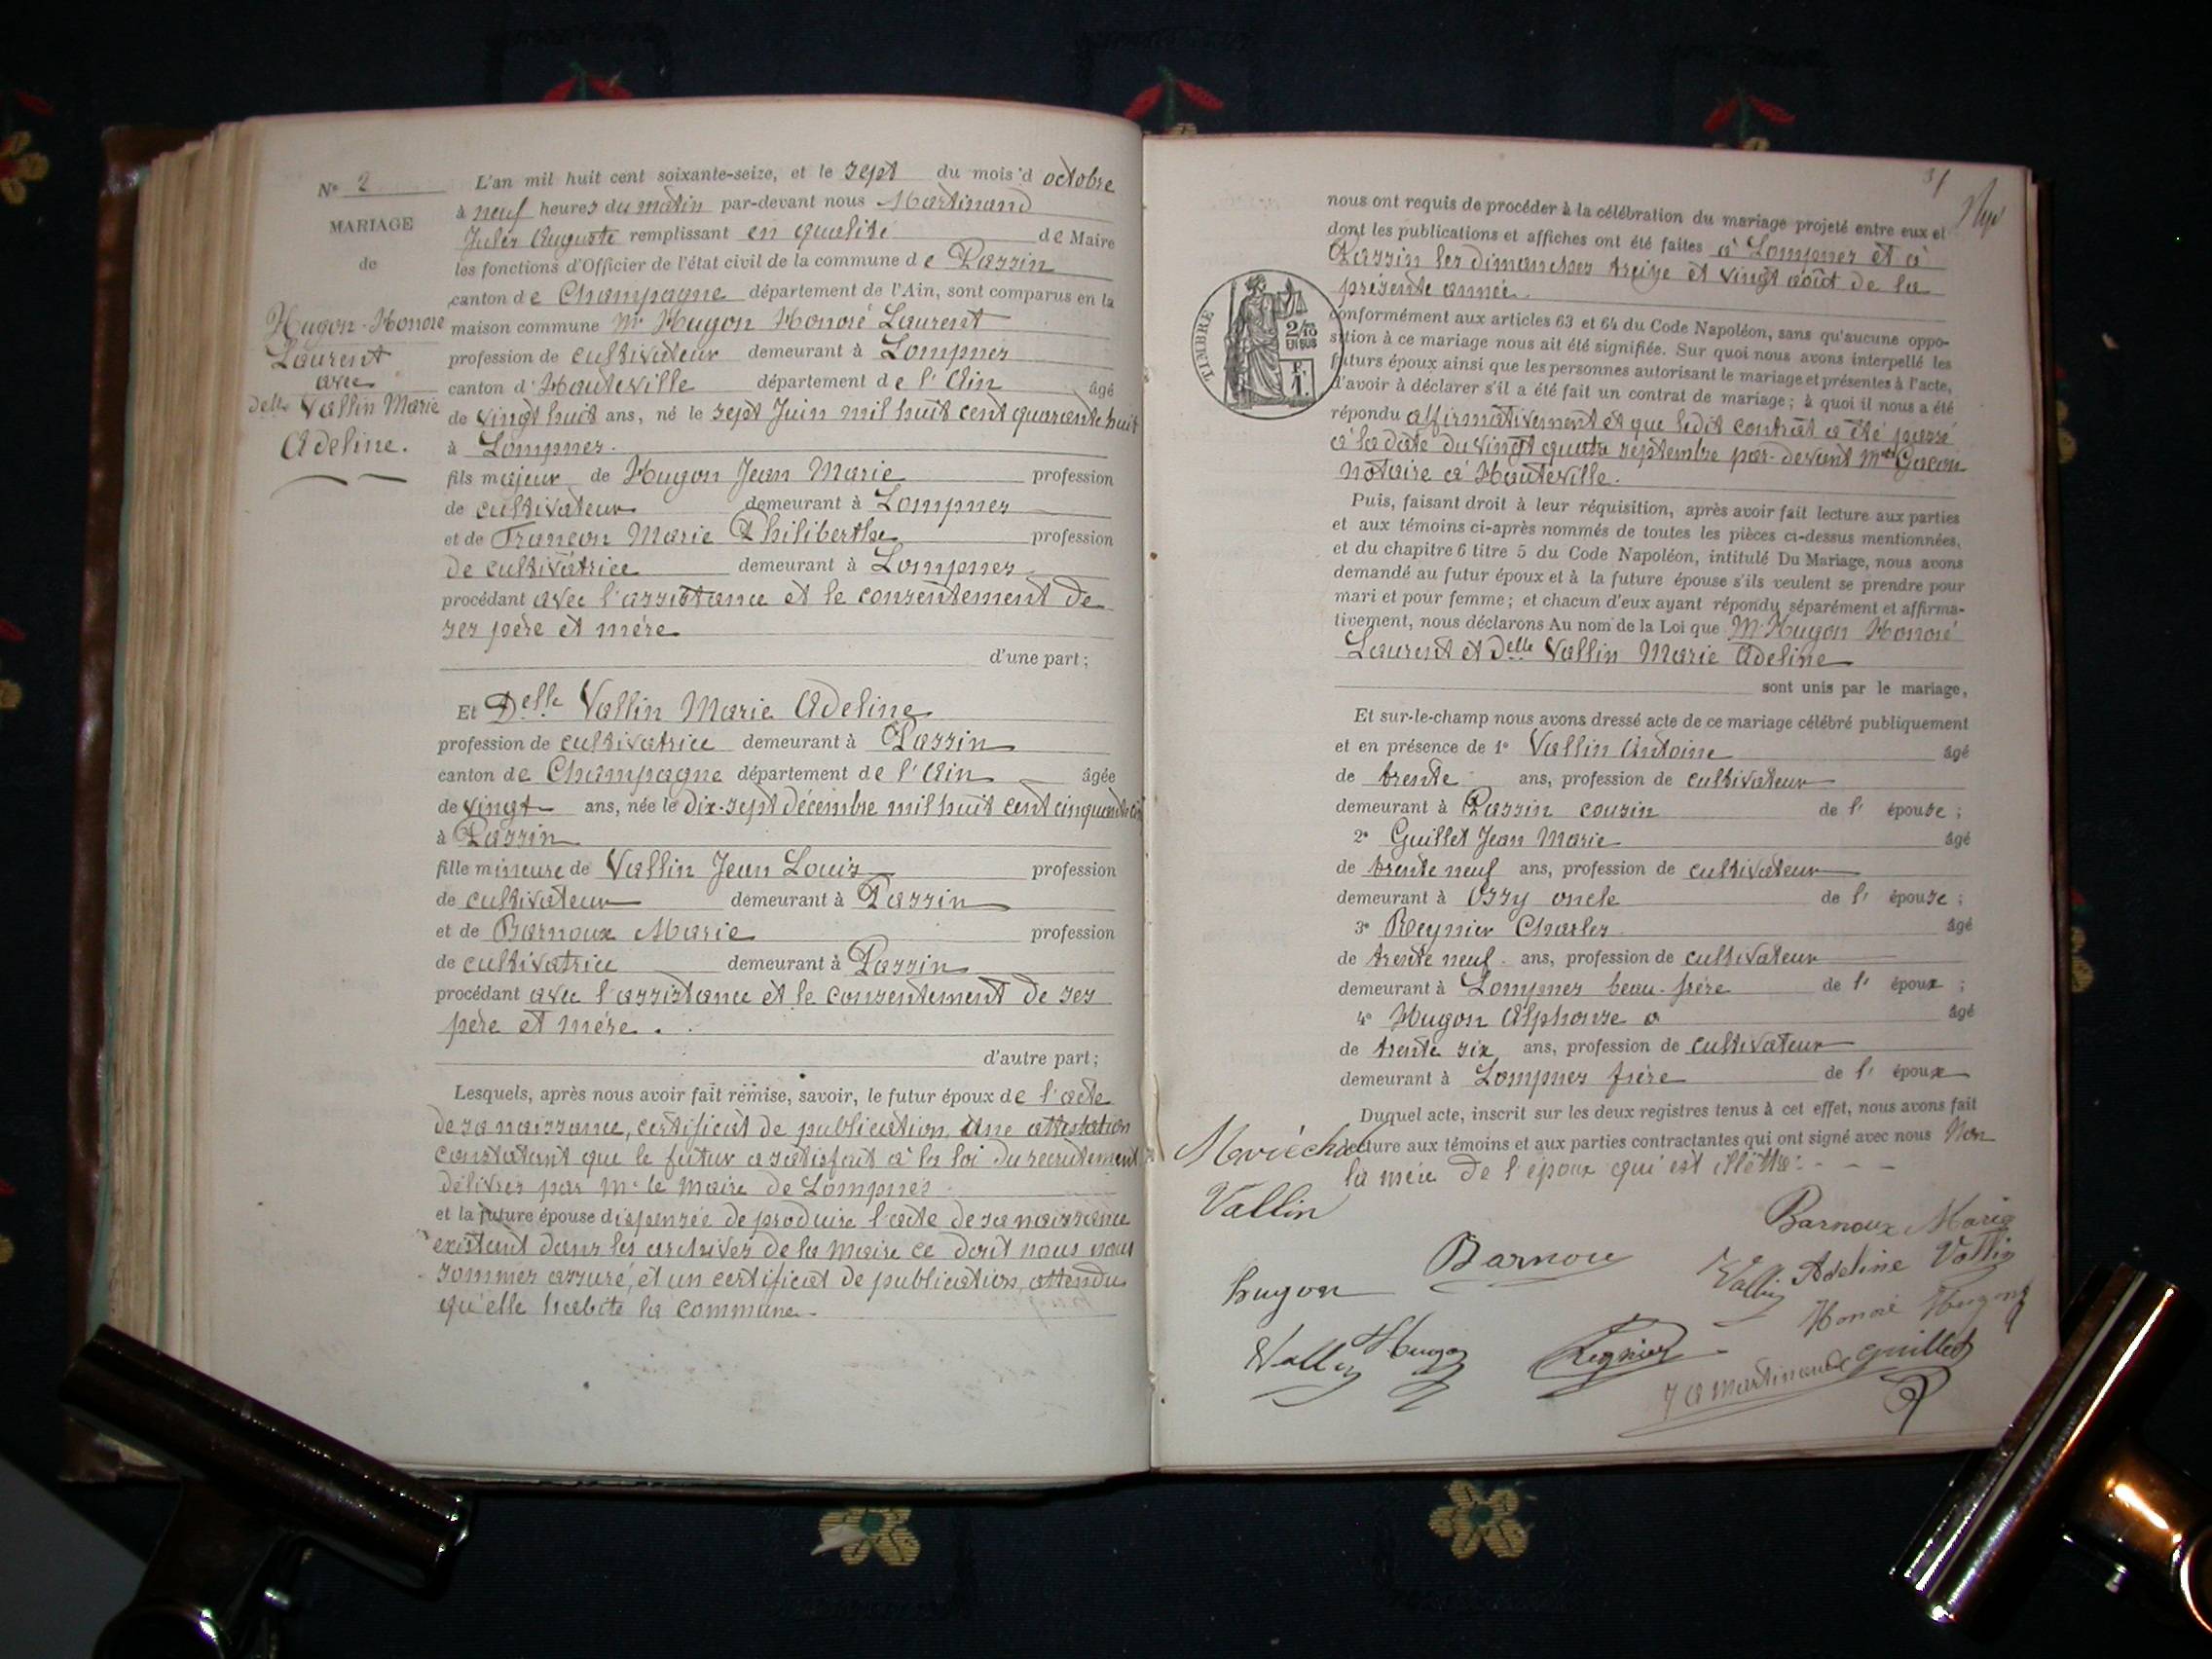 Nº 2
MARIAGE
de
Hugon Honoré
Laurent
avec
Delle Vallin Marie
Adeline.
L'an mil huit cent soixante-seize, et le sept du mois d'octobre
à neuf heures du matin par-devant nous Martinand
Jules Auguste remplissant en qualité de Maire
les fonctions d'Officier de l'état civil de la commune de Passin
canton de Champagne département de l'Ain, sont comparus en la
maison commune Mr Hugon Honoré Laurent
profession de cultivateur demeurant à Lompnes
canton d'Hauteville département de l'Ain âgé
de vingt huit ans, né le sept Juin mil huit cent quarante huit
à Lompnes.
fils majeur de Hugon Jean Marie profession
de cultivateur demeurant à Lompnes
et de Françon Marie Philiberthe profession
de cultivatrice demeurant à Lompnes
procédant avec l'assistance et le consentement de
ses père et mère
d'une part;
Et Delle Vallin Marie Adeline
profession de cultivatrice demeurant à Passin
canton de Champagne département de l'Ain âgée
de vingt ans, née le dix-sept décembre mil huit cent cinquante cinq
à Passin
fille mineure de Vallin Jean Louis profession
de cultivateur demeurant à Passin
et de Barnoux Marie profession
de cultivatrice demeurant à Passin
procédant avec l'assistance et le consentement de ses
père et mère.
d'autre part;
Lesquels, après nous avoir fait remise, savoir, le futur époux de l'acte
de sa naissance, certificat de publication, Une attestation
constatant que le futur a satisfait à la loi du recrutement
délivrés par Mr le Maire de Lompnes
et la future épouse dispensée de produire l'acte de sa naissance
existant dans les archives de la Mairie ce dont nous nous
sommes assuré, et un certificat de publication, attendu
qu'elle habite la commune.
31
nous ont requis de procéder à la célébration du mariage projeté entre eux et
dont les publications et affiches ont été faites à Lompnes et à
Passin les dimanches treize et vingt août de la
présente année.
TIMBRE
2/10
EN SUS
1 F.
conformément aux articles 63 et 64 du Code Napoléon, sans qu'aucune oppo-
sition à ce mariage nous ait été signifiée. Sur quoi nous avons interpellé les
futurs époux ainsi que les personnes autorisant le mariage et présentes à l'acte,
d'avoir à déclarer s'il a été fait un contrat de mariage; à quoi il nous a été
répondu affirmativement et que ledit contrat a été passé
à la date du vingt quatre septembre par-devant Mtre Gacon
notaire à Hauteville.
Puis, faisant droit à leur réquisition, après avoir fait lecture aux parties
et aux témoins ci-après nommés de toutes les pièces ci-dessus mentionnées,
et du chapitre 6 titre 5 du Code Napoléon, intitulé Du Mariage, nous avons
demandé au futur époux et à la future épouse s'ils veulent se prendre pour
mari et pour femme; et chacun d'eux ayant répondu séparément et affirma-
tivement, nous déclarons Au nom de la Loi que Mr Hugon Honoré
Laurent et Delle Vallin Marie Adeline
sont unis par le mariage,
Et sur-le-champ nous avons dressé acte de ce mariage célébré publiquement
et en présence de 1º Vallin Antoine âgé
de trente ans, profession de cultivateur
demeurant à Passin cousin de l'épouse;
2º Guillet Jean Marie âgé
de trente neuf ans, profession de cultivateur
demeurant à Ossy oncle de l'épouse;
3º Reynier Charles âgé
de trente neuf ans, profession de cultivateur
demeurant à Lompnes beau-frère de l'époux;
4º Hugon Alphonse a âgé
de trente six ans, profession de cultivateur
demeurant à Lompnes frère de l'époux
Duquel acte, inscrit sur les deux registres tenus à cet effet, nous avons fait
lecture aux témoins et aux parties contractantes qui ont signé avec nous Non
la mère de l'époux qui est illétré. - - -
Maréchal
Vallin
Barnoux Marie
Barnou
Vallin Adeline Vallin
hugon
Honoré Hugon
Vallin
Hugon
Regnier
Guillet
J A Martinand